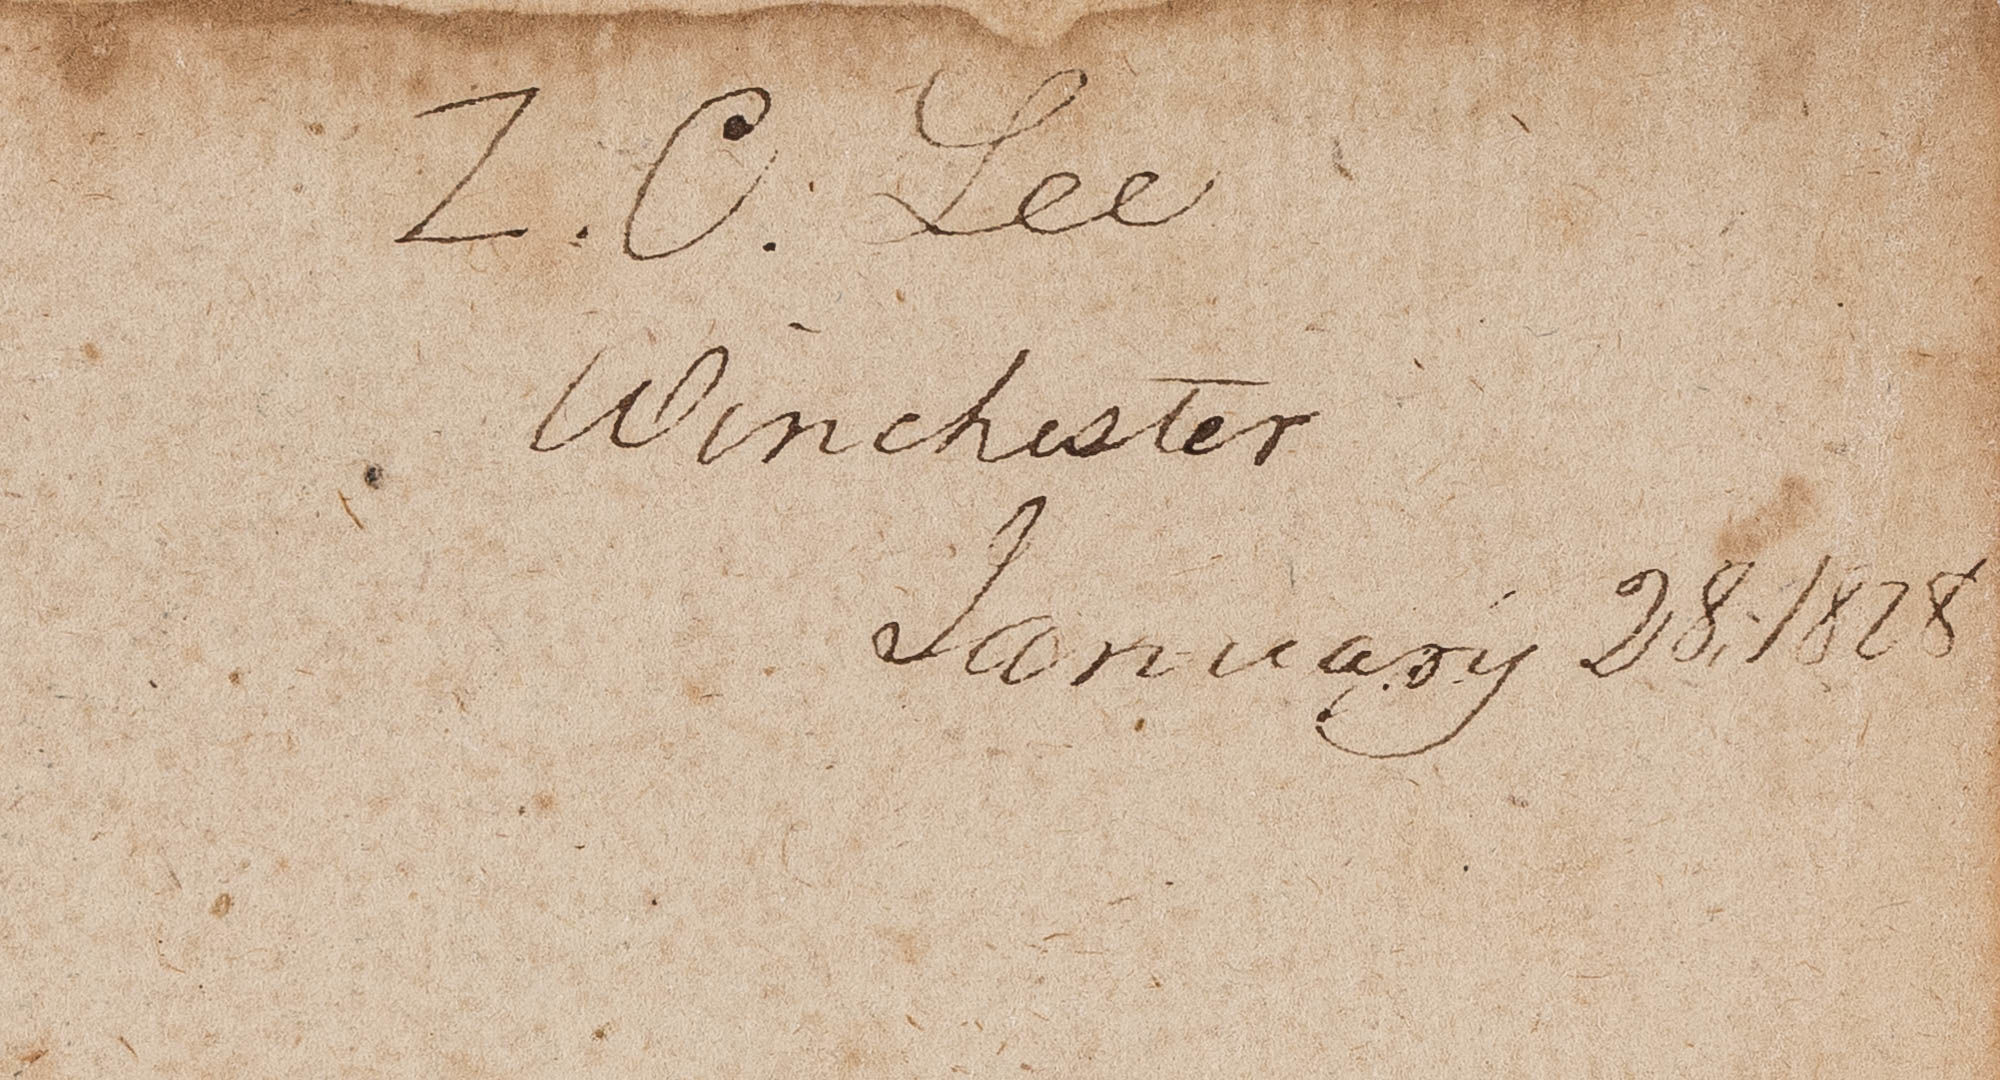 Z. C. Lee
Winchester
January 28, 1828